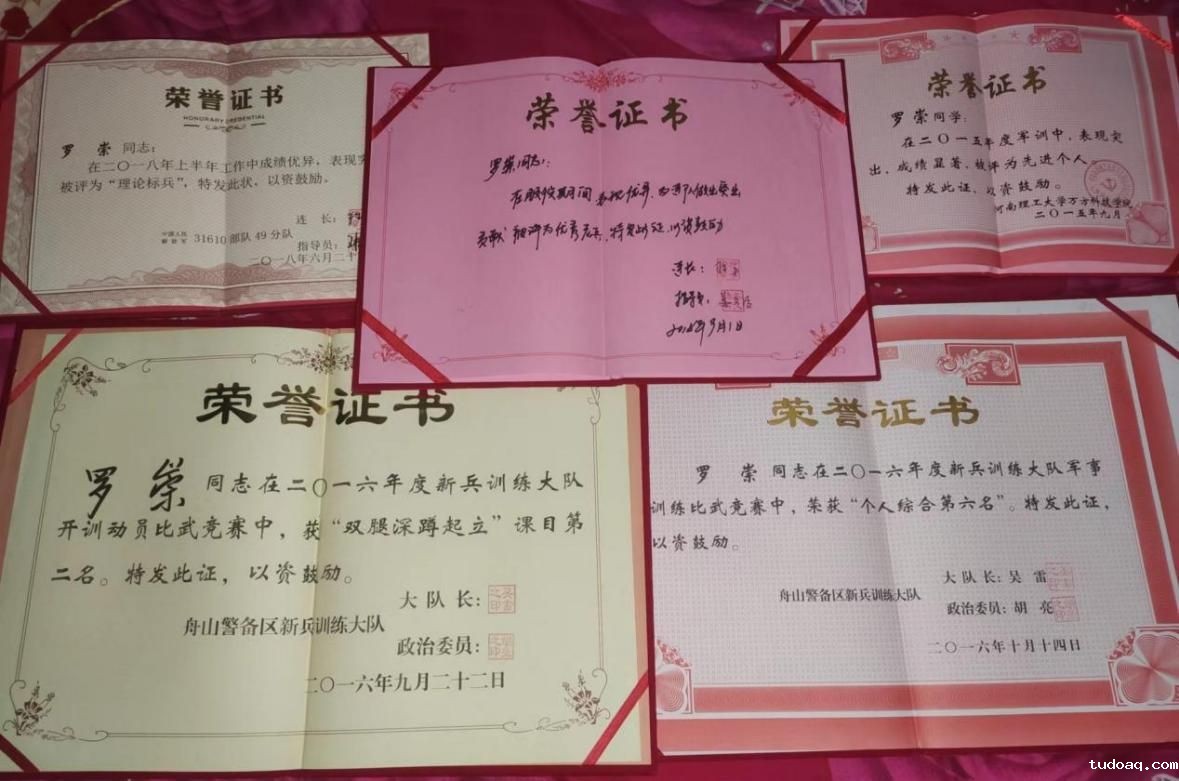 荣誉证书
HONORARY CREDENTIAL
罗 崇 同志:
在二〇一八年上半年工作中成绩优异，表现突
被评为“理论标兵”，特发此状，以资鼓励。
连 长:
中国人民
解放军 31610部队49分队
指导员:
二〇一八年六月二十
荣誉证书
罗崇同志:
在服役期间，表现优异，为部队做出突出
贡献，被评为优秀士兵，特发此证，以资鼓励
连长:
指导员:
年9月1日
荣誉证书
罗 崇同学:
在二〇一五年度军训中，表现突
出，成绩显著，被评为先进个人。
特发此证，以资鼓励。
河南理工大学万方科技学院
二〇一五年九月
荣誉证书
罗 崇 同志在二〇一六年度新兵训练大队
开训动员比武竞赛中，获“双腿深蹲起立”课目第
二名。特发此证，以资鼓励。
大 队 长:
舟山警备区新兵训练大队
政治委员:
二〇一六年九月二十二日
荣誉证书
罗 崇 同志在二〇一六年度新兵训练大队军事
训练比武竞赛中，荣获“个人综合第六名”。特发此证，
以资鼓励。
大 队 长: 吴 雷
舟山警备区新兵训练大队
政治委员: 胡 亮
二〇一六年十月十四日
tudoaq.com